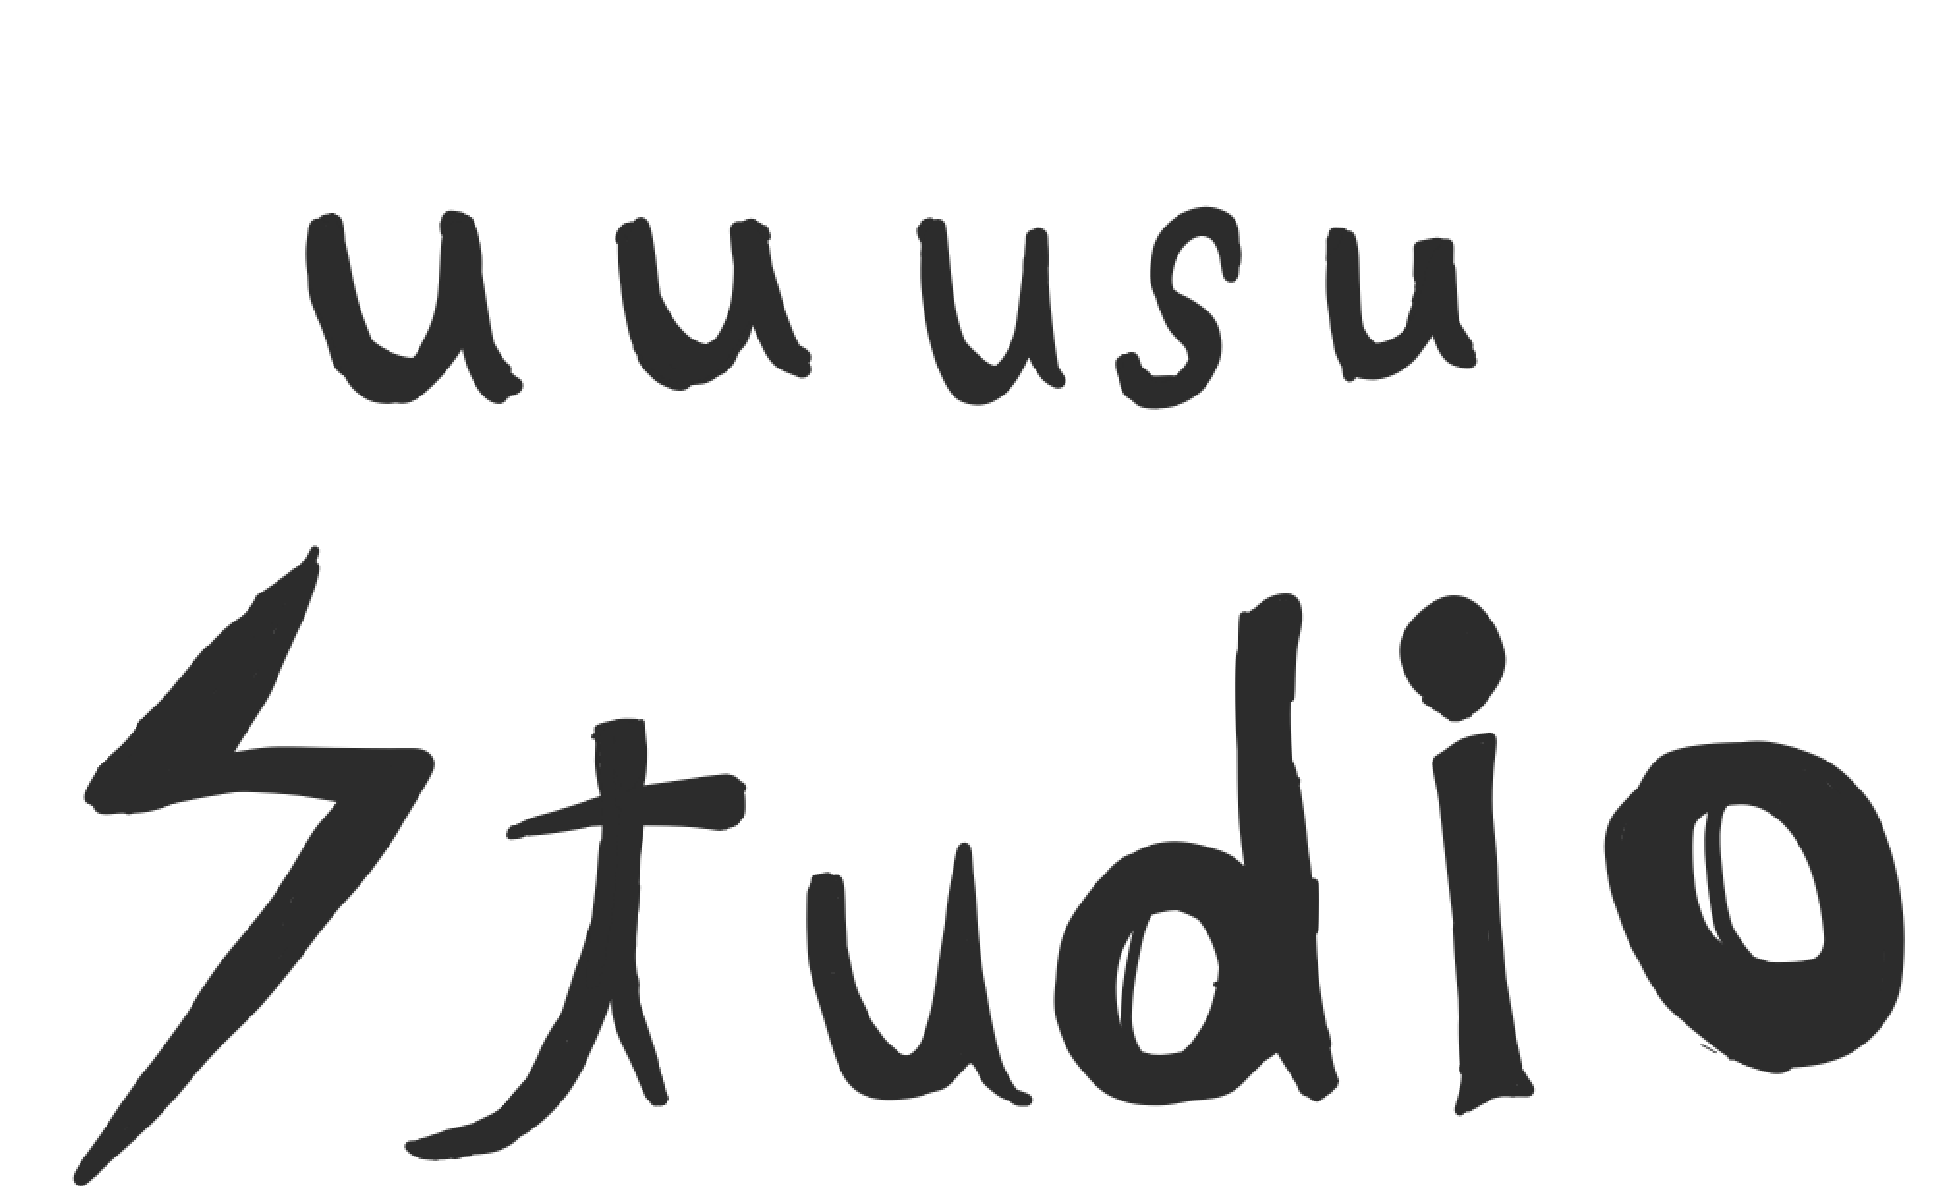 uuusu
Studio